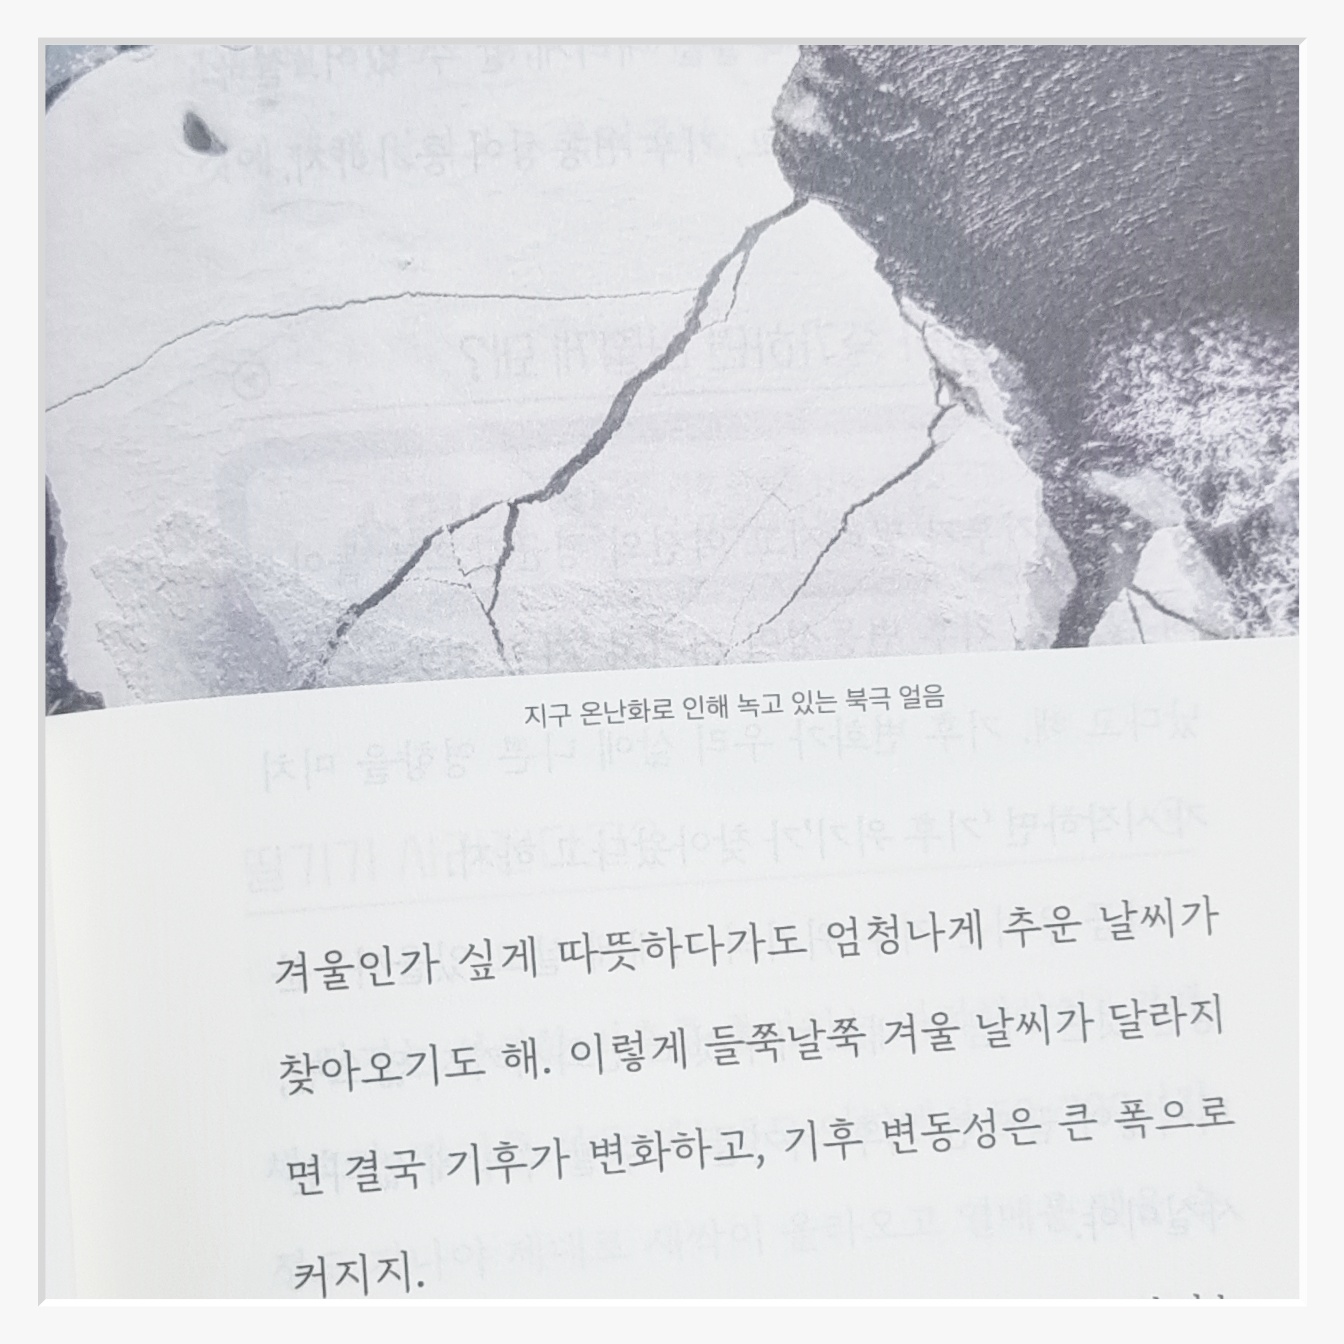 지구 온난화로 인해 녹고 있는 북극 얼음
겨울인가 싶게 따뜻하다가도 엄청나게 추운 날씨가
찾아오기도 해. 이렇게 들쭉날쭉 겨울 날씨가 달라지
면 결국 기후가 변화하고, 기후 변동성은 큰 폭으로
커지지.